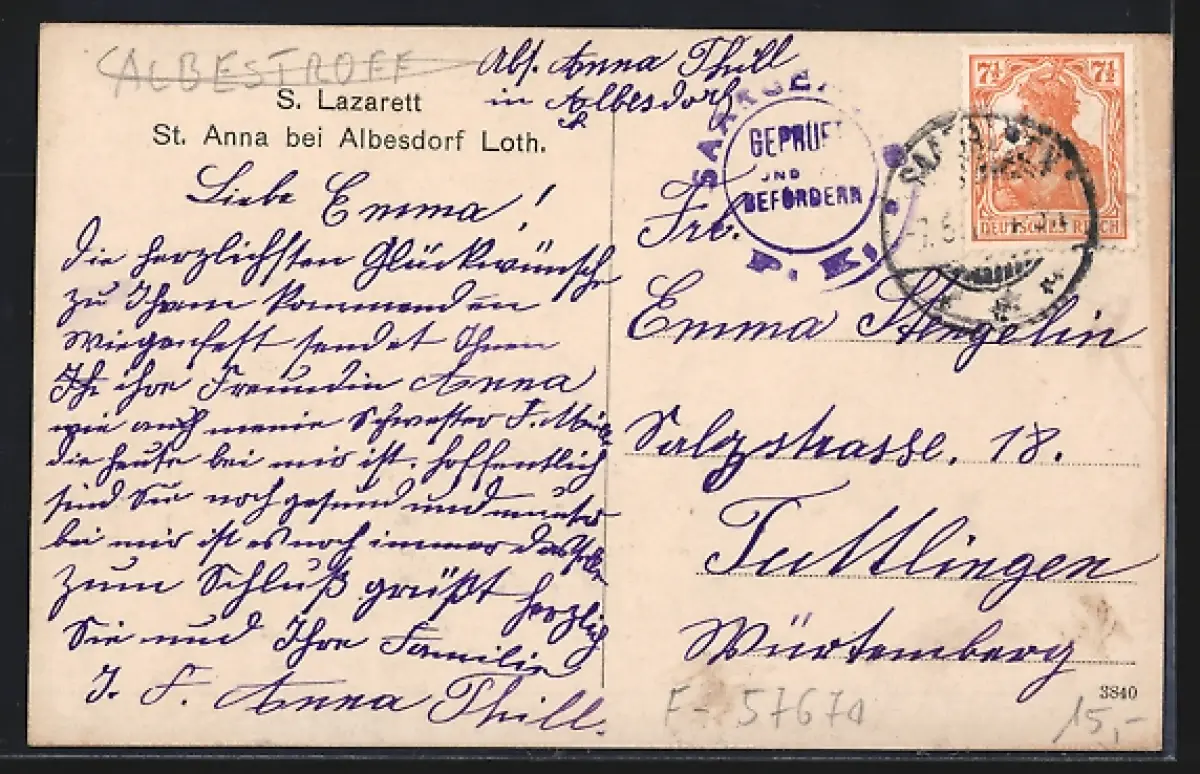 ALBESTROFF
S. Lazarett
St. Anna bei Albesdorf Loth.
Abs. Anna Thill
in Albesdorf
Liebe Emma!
Die herzlichsten Glückwünsche
zu Ihrem kommenden
Wiegenfest sendet Ihnen
ihre Freundin Anna
wie auch meine Schwester F.
die heute bei mir ist. hoffentlich
sind Sie noch gesund und munter
bei mir ist es noch immer dasselbe
zum Schluß grüßt herzlich
Sie und Ihre Familie
I. F. Anna Thill.
GEPRÜFT
UND
BEFÖRDERN
7½ 7½
DEUTSCHES REICH
Frl.
Emma Stengelin
Salzstrasse. 18.
Tuttlingen
Würtemberg
3840
F- 5767Δ
15,-